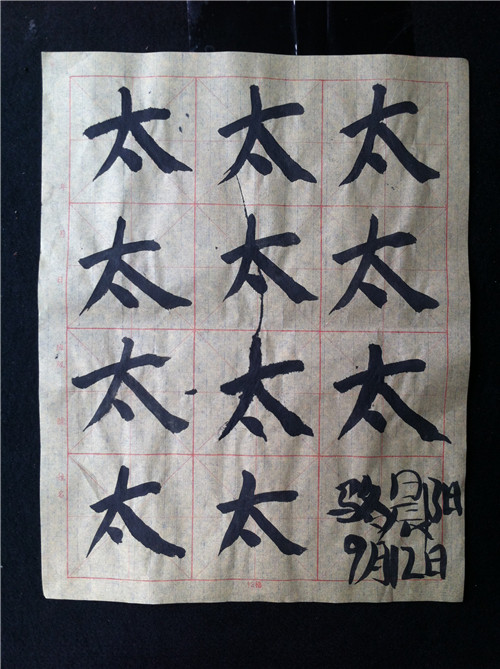 太 太 太
太 太 太
太 太 太
太 太 骆晨阳
9月12日